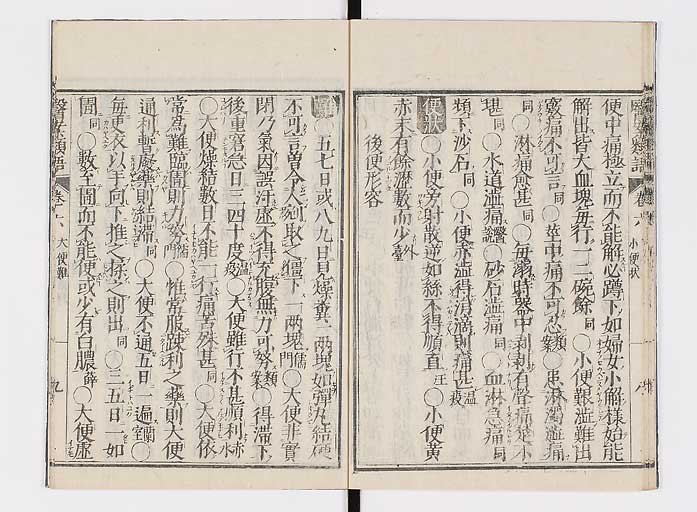 便中痛極立而不能解必蹲下如婦女小解樣始能
解出皆大血塊每行一二碗餘同○小便艱澁難出
竅痛不可言同○莖中痛不可忍類案○患淋濁澁痛
同○淋痛愈甚同○每溺時器中剥剥有聲痛
堪同○水道澁痛醫○砂石澁痛同○血淋急痛同
頻下沙石同○小便赤澁得涓滴則痛甚温疫
便状○小便旁射散逆如絲不得順直汪○小便黄
赤未有餘瀝數而少外臺
後便形容
醫案類語 卷十六 小便状
○五七日或八九日見燥糞一兩塊如彈丸結硬
不可言曾令人剜取之僵下一兩塊儒門○大便非實
閉乃氣因誤汗虚不得充腹無力可努類案○得滯下
後重窘急日三四十度温疫○大便雖行不甚順利赤水
○大便燥結數日不能一行痛苦殊甚同○大便依
常爲難臨圊則力努儒門○惟常服踈利之藥則大便
通利暫廢藥則結滯同○大便不通五日一遍蘭室
每更衣以手向下推之探之則出同○三五日一如
圊同○數至圊而不能便或少有白膿薛○大便虚
醫案類語 卷十六 大便難 九